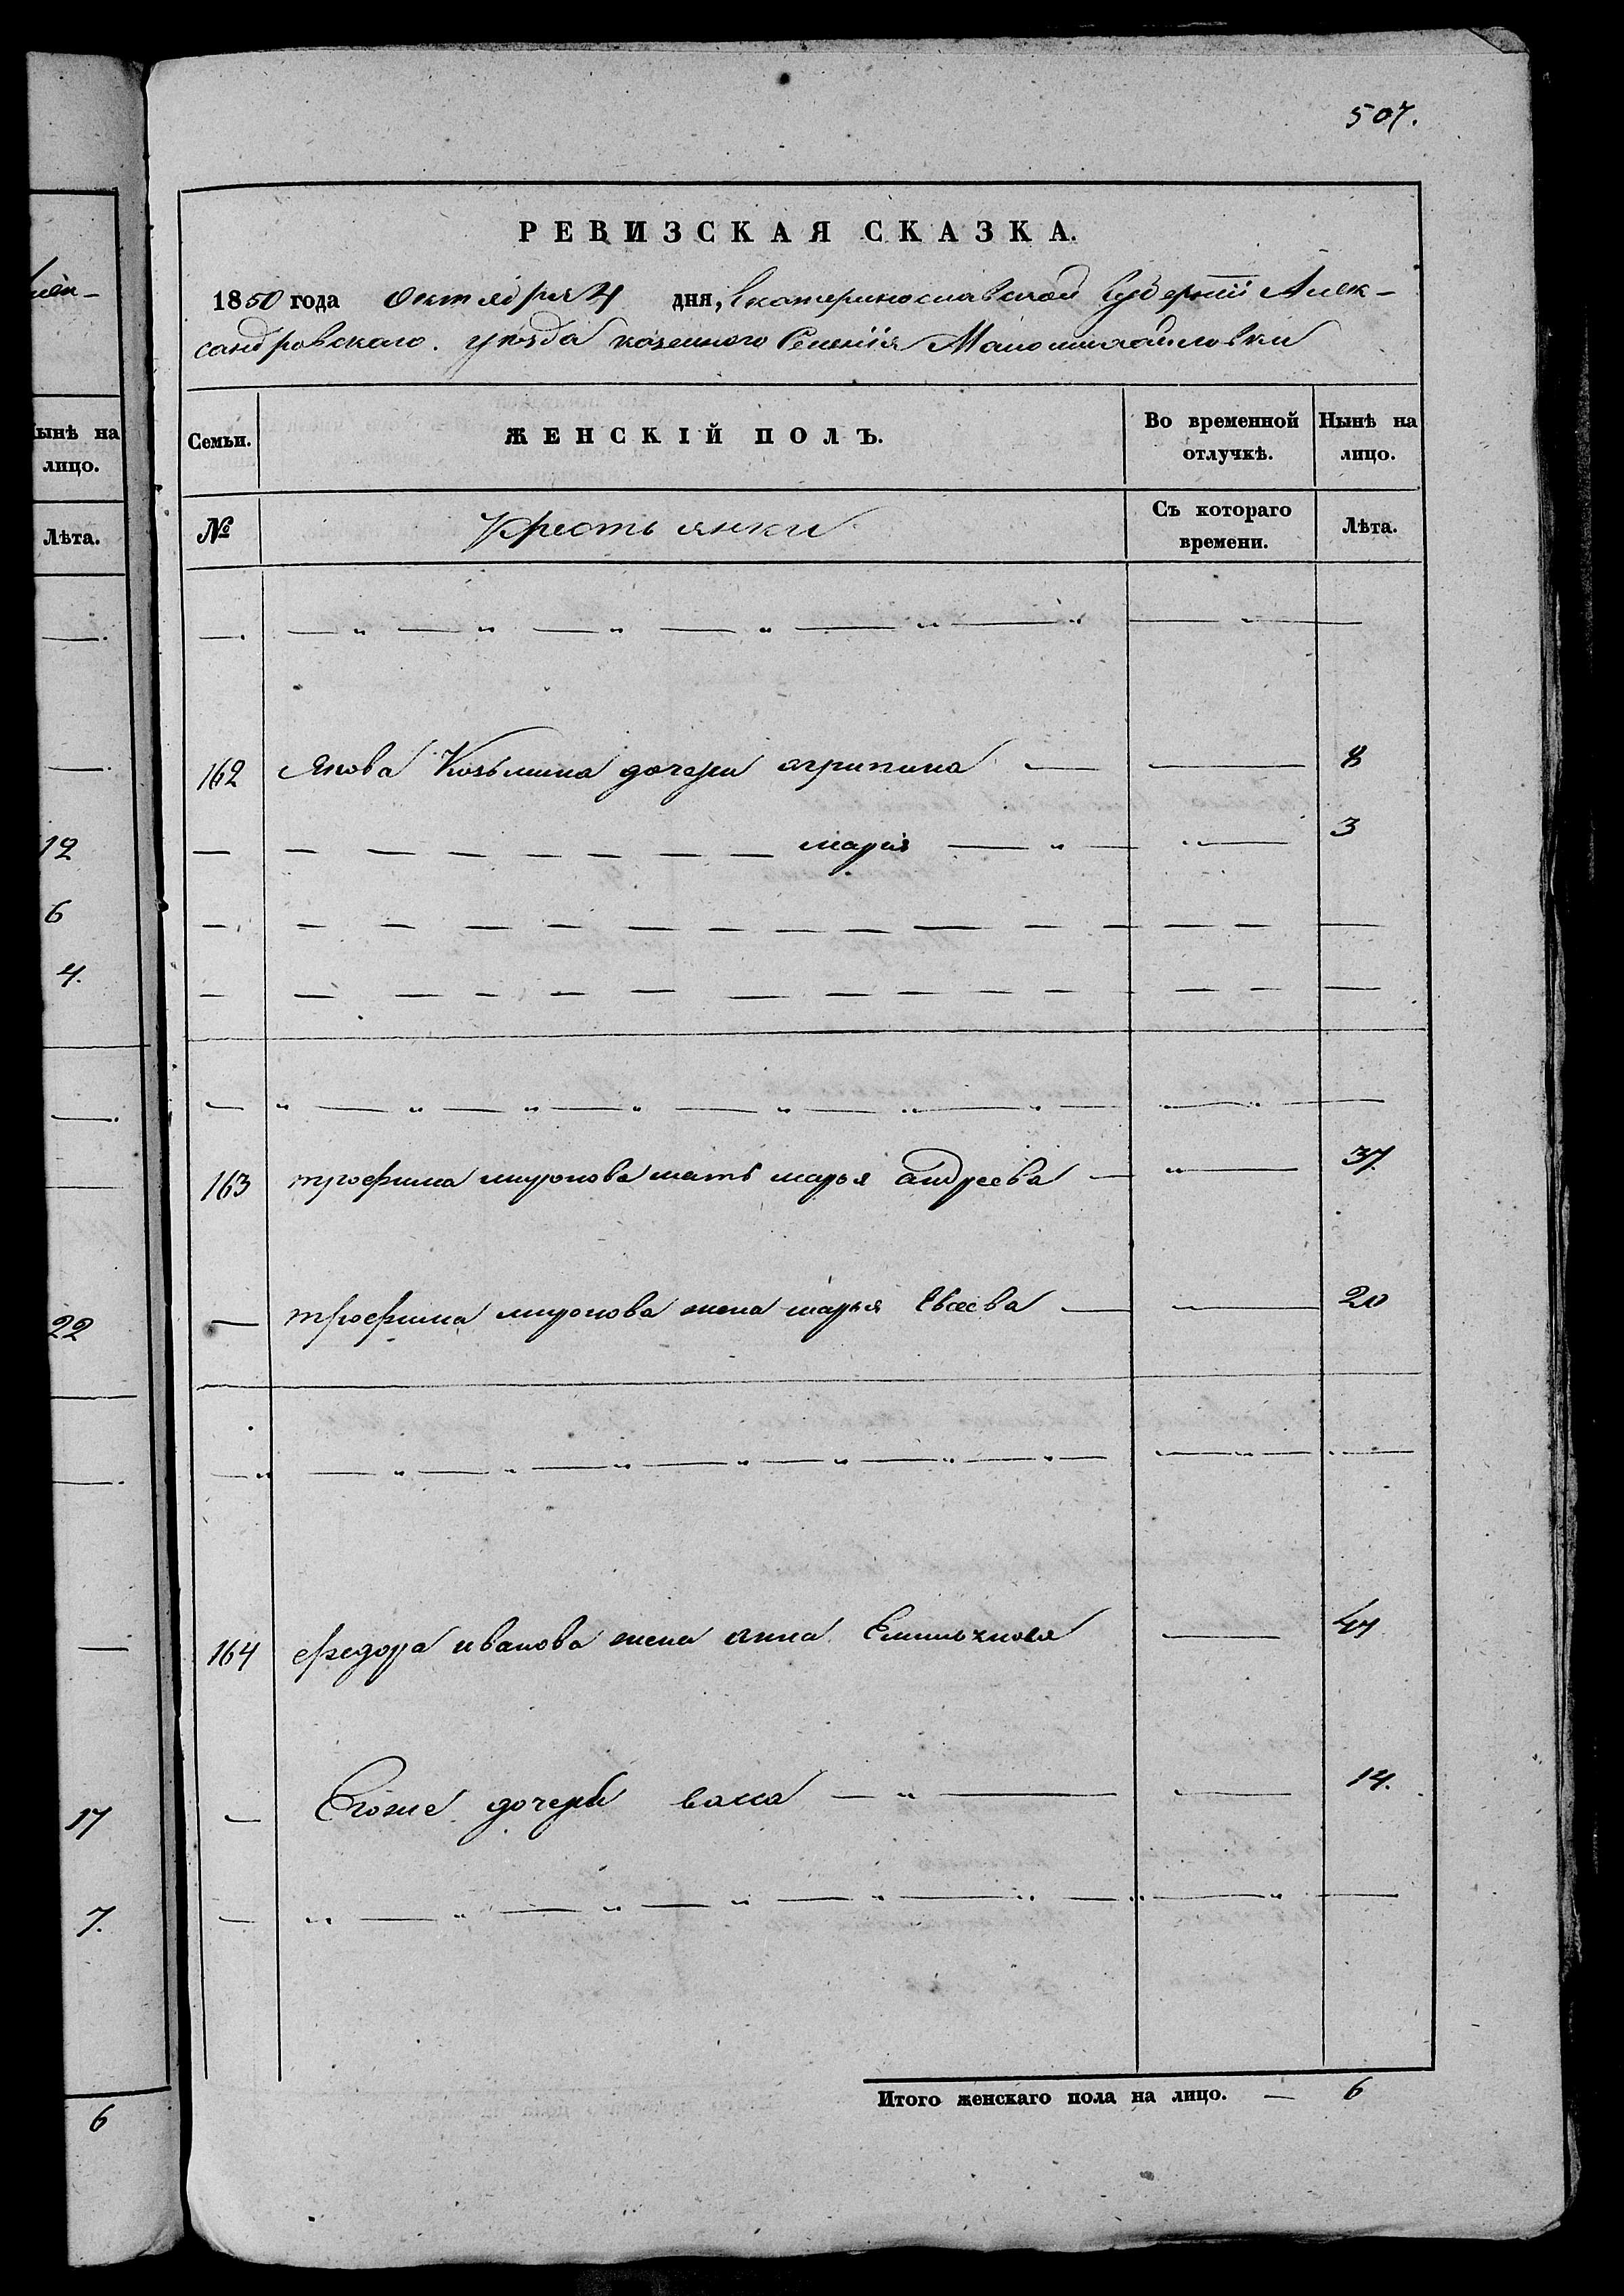 507.
РЕВИЗСКАЯ СКАЗКА.
1850 года октября 4 дня, Екатеринославской Губернии Алек-
сандровскаго уезда казенного Селения Маломихайловки
Семьи. ЖЕНСКІЙ ПОЛЪ. Во временной отлучкѣ. Нынѣ на лицо.
№ Крестьянки Съ котораго времени. Лѣта.
162 Якова Козьмина дочери агрипина — — 8
— мария — „ — „ — 3
163 трофима миронова мать марья андреева — „ — 37
— трофима миронова жена марья Евсеева — „ — 20
164 федора иванова жена анна — 47
— Егоже дочерь васса — „ — — 14.
Итого женскаго пола на лицо. — 6
Нынѣ на
лицо.
Лѣта.
12
6
4.
22
17
7.
6